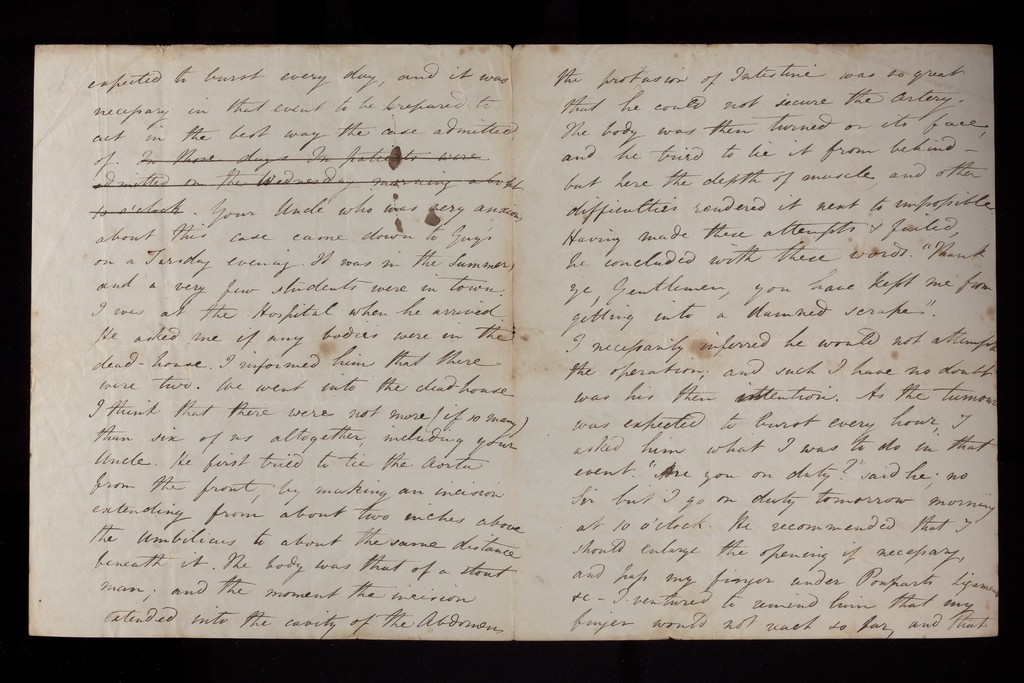 expected to burst every day, and it was
necessary in that event to be prepared to
act in the best way the case admitted
of. In those days In patients were
admitted on the Wednesday morning about
10 o'clock. Your Uncle who was very anxious
about this case came down to Guy's
on a Tuesday evening. It was in the Summer,
and a very few students were in town.
I was at the Hospital when he arrived
He asked me if any bodies were in the
dead-house. I informed him that there
were two. We went into the dead-house
I think that there were not more (if so many)
than six of us altogether, including your
Uncle. He first tried to tie the Aorta
from the front, by making an incision
extending from about two inches above
the Umbilicus to about the same distance
beneath it. The body was that of a stout
man, and the moment the incision
extended into the cavity of the Abdomen,
the protrusion of Intestine was so great
that he could not secure the Artery.
The body was then turned on its face,
and he tried to tie it from behind -
but here the depth of muscle and other
difficulties rendered it next to impossible
Having made these attempts & failed,
he concluded with these words. "Thank
ye, Gentlemen, you have kept me from
getting into a damned scrape".
I necessarily inferred he would not attempt
the operation; and such I have no doubt
was his then intention. As the tumour
was expected to burst every hour, I
asked him what I was to do in that
event. "Are you on duty?" said he; no
Sir but I go on duty tomorrow morning
at 10 o'clock. He recommended that I
should enlarge the opening if necessary,
and pass my finger under Pouparts ligament
&c - I ventured to remind him that my
finger would not reach so far, and that